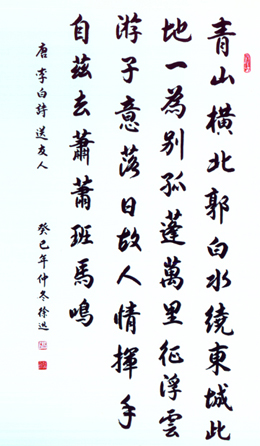 青山橫北郭白水繞東城此
地一為別孤蓬萬里征浮雲
游子意落日故人情揮手
自茲去蕭蕭班馬鳴
唐李白詩送友人 癸巳年仲冬徐